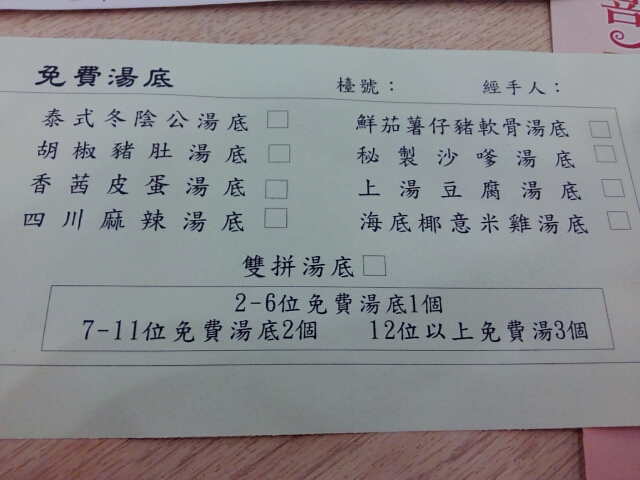 免費湯底 檯號： 經手人：
泰式冬陰公湯底 □ 鮮茄薯仔豬軟骨湯底 □
胡椒豬肚湯底 □ 秘製沙嗲湯底 □
香茜皮蛋湯底 □ 上湯豆腐湯底 □
四川麻辣湯底 □ 海底椰意米雞湯底 □
雙拼湯底 □
2-6位免費湯底1個
7-11位免費湯底2個 12位以上免費湯3個